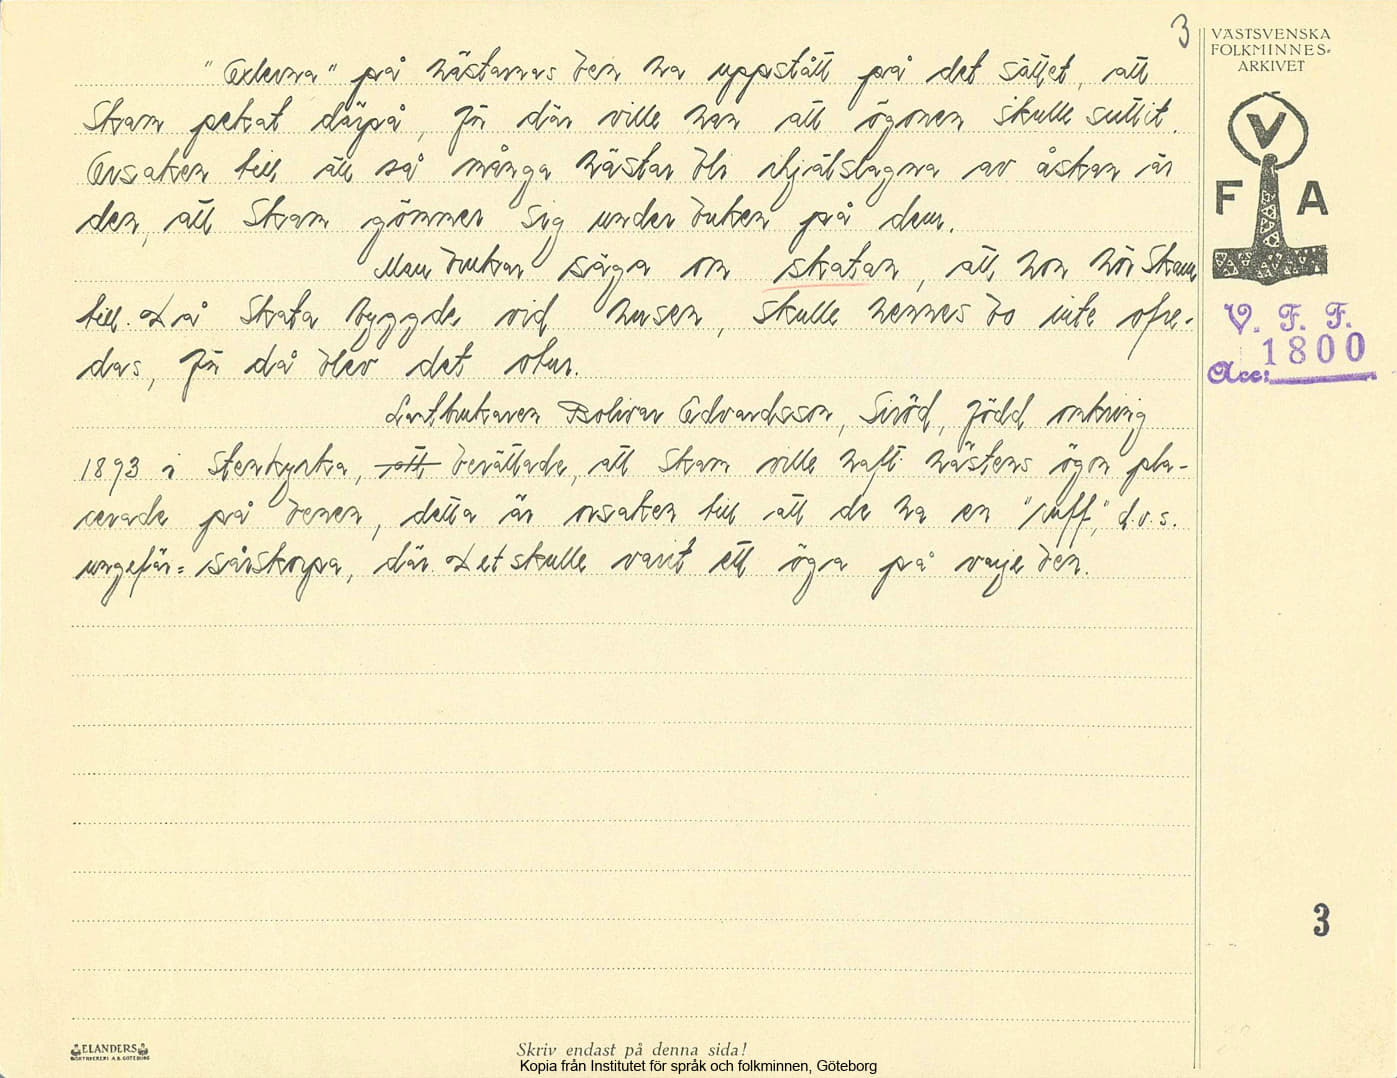 3
VÄSTSVENSKA
FOLKMINNES-
ARKIVET
V
F A
V. F. F.
1800
Acc:
" på hästarnas ben ha uppstått på det sättet, att
Skam pekat därpå, för där ville han att ögonen skulle suttit.
Orsaken till att så många hästar bli ihjälslagna av åskan är
den, att Skam gömmer sig under buken på dem.
Man brukar säga om skatan, att hon hör Skam
till. Då Skata byggde vid husen, skulle hennes bo inte ofre-
das, för då blev det otur.
Lantbrukaren Bolivar Edvardsson, Siröd, född omkring
1893 i Stenkyrka, att berättade, att Skam ville haft hästens ögon pla-
cerade på benen, detta är orsaken till att de ha en "ruff," d.v.s.
ungefär = sårskorpa, där Det skulle varit ett öga på varje ben.
3
ELANDERS
BOKTRYCKERI A.B. GÖTEBORG
Skriv endast på denna sida!
Kopia från Institutet för språk och folkminnen, Göteborg